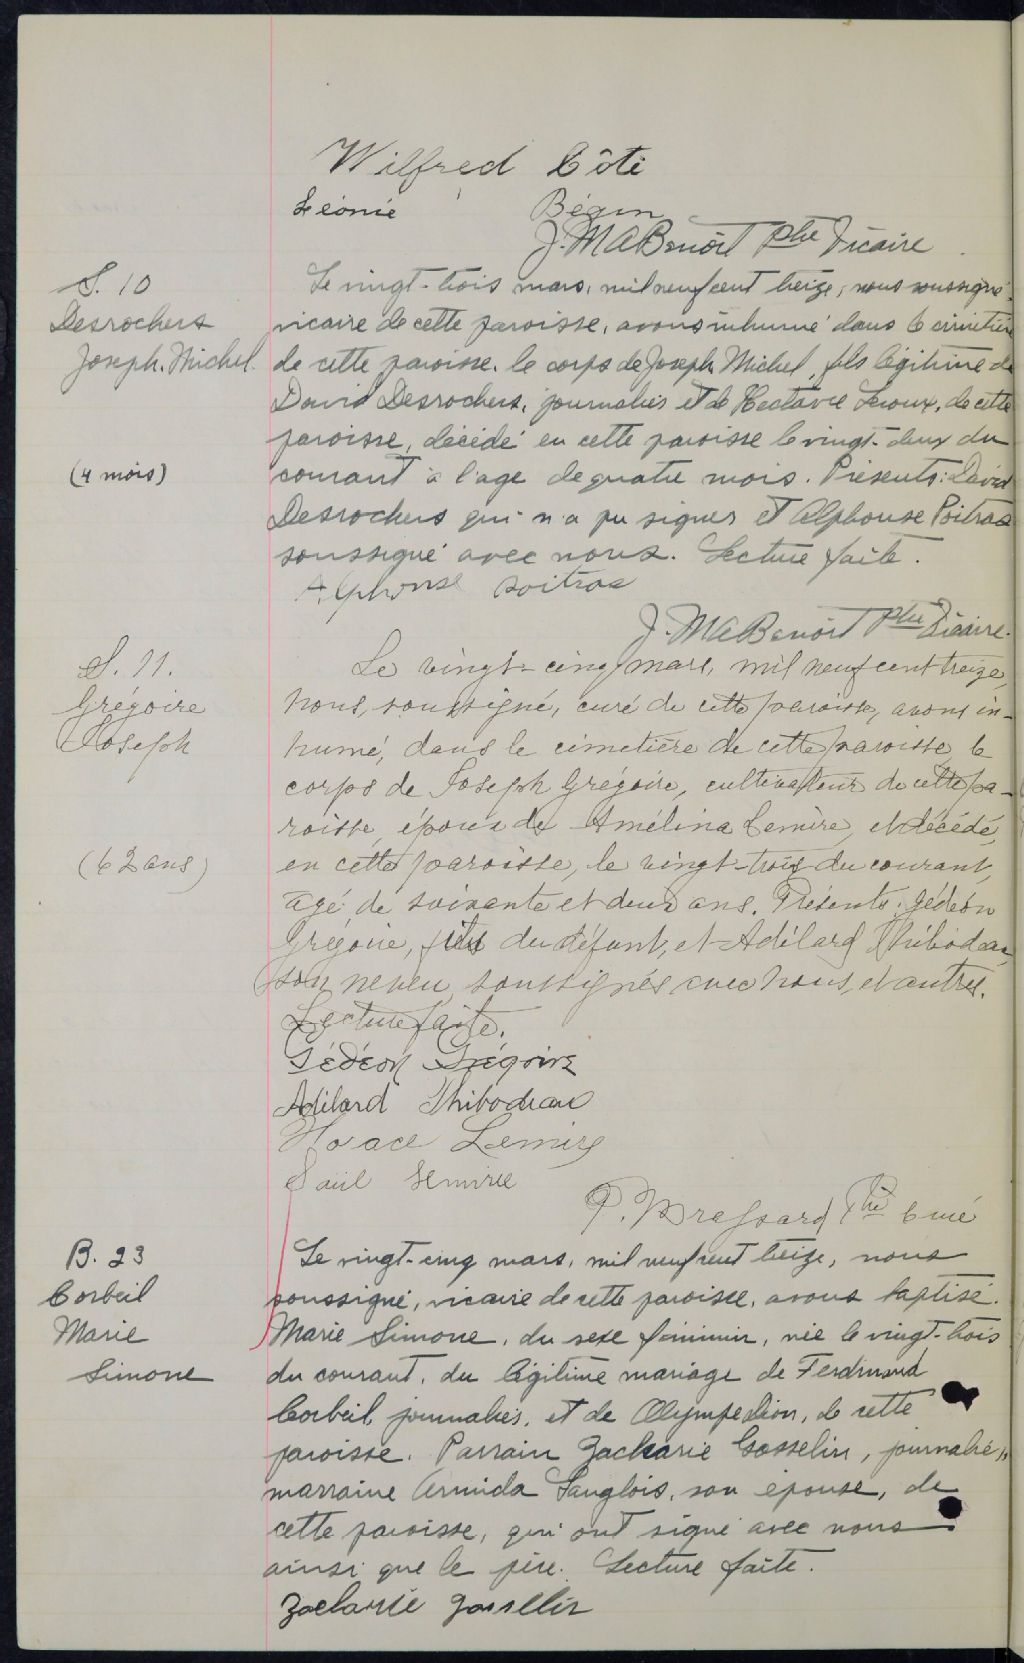 Wilfred Côté
Léonie Bégin
J. MABenoit ptre Vicaire
S. 10
Desrochers
Joseph. Michel.
(4 mois)
Le vingt-trois mars, mil neuf cent treize, nous soussigné
vicaire de cette paroisse, avons inhumé dans le cimetière
de cette paroisse, le corps de Joseph Michel, fils légitime de
David Desrochers, journalier et de Leroux, de cette
paroisse, décédé en cette paroisse le vingt-deux du
courant à l'age de quatre mois. Présents: David
Desrochers qui n'a pu signer et Alphonse Poitras
soussigné avec nous. Lecture faite.
Alphonse Poitras
J. MABenoit Ptre Vicaire.
S. 11.
Grégoire
Joseph
(62 ans)
Le vingt-cinq mars, mil neuf cent treize,
nous, soussigné, curé de cette paroisse, avons in-
humé, dans le cimetière de cette paroisse, le
corps de Joseph Grégoire, cultivateur de cette pa-
roisse, époux de Amélina Lemire, et décédé,
en cette paroisse, le vingt-trois du courant,
agé de soixante et deux ans. Présents: Gédéon
Grégoire, fils du défunt, et Adélard Thibodeau,
son neveu, soussignés avec nous, et autres.
Lecture faite.
Gédéon Grégoire
Adélard Thibodeau
Horace Lemire
Saül Lemire
P. Bressard Ptre Curé
B. 23
Corbeil
Marie
Simone
Le vingt-cinq mars, mil neuf cent treize, nous
soussigné, vicaire de cette paroisse, avons baptisé.
Marie Simone, du sexe féminin, née le vingt-trois
du courant, du légitime mariage de Ferdinand
Corbeil, journalier, et de Olympe Dion, de cette
paroisse. Parrain Zacharie Gosselin, journalier,
marraine Armida Langlois, son épouse, de
cette paroisse, qui ont signé avec nous
ainsi que le père. Lecture faite.
Zacharie Gosselin